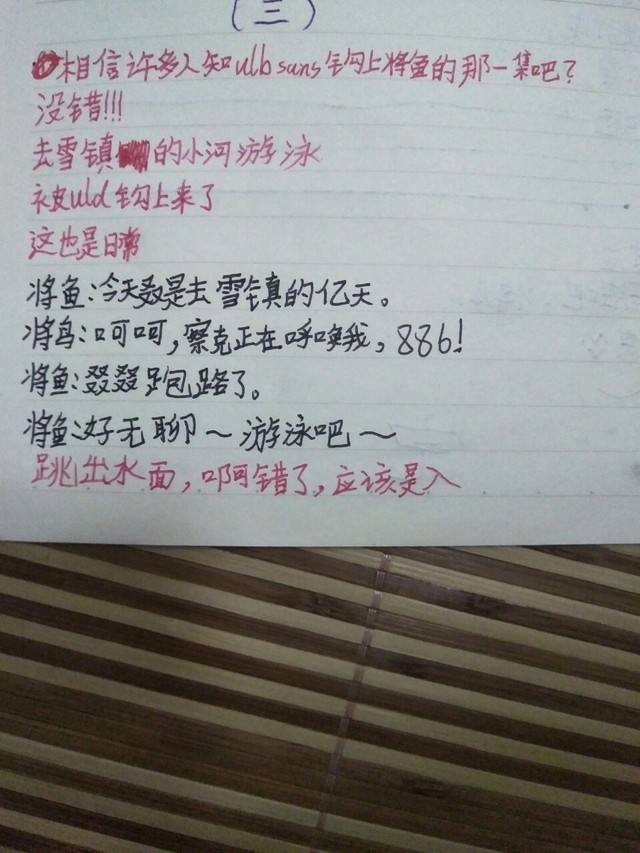 (三)
相信许多人知ulb sans钩上将鱼的那一集吧?
没错!!!
去雪镇的小河游泳
被uld钩上来了
这也是日常
将鱼:今天叒是去雪镇的亿天。
将鸟:呵呵,察克正在呼唤我,886!
将鱼:叕叕跑路了。
将鱼:好无聊~游泳吧~
跳出水面,啊错了,应该是入